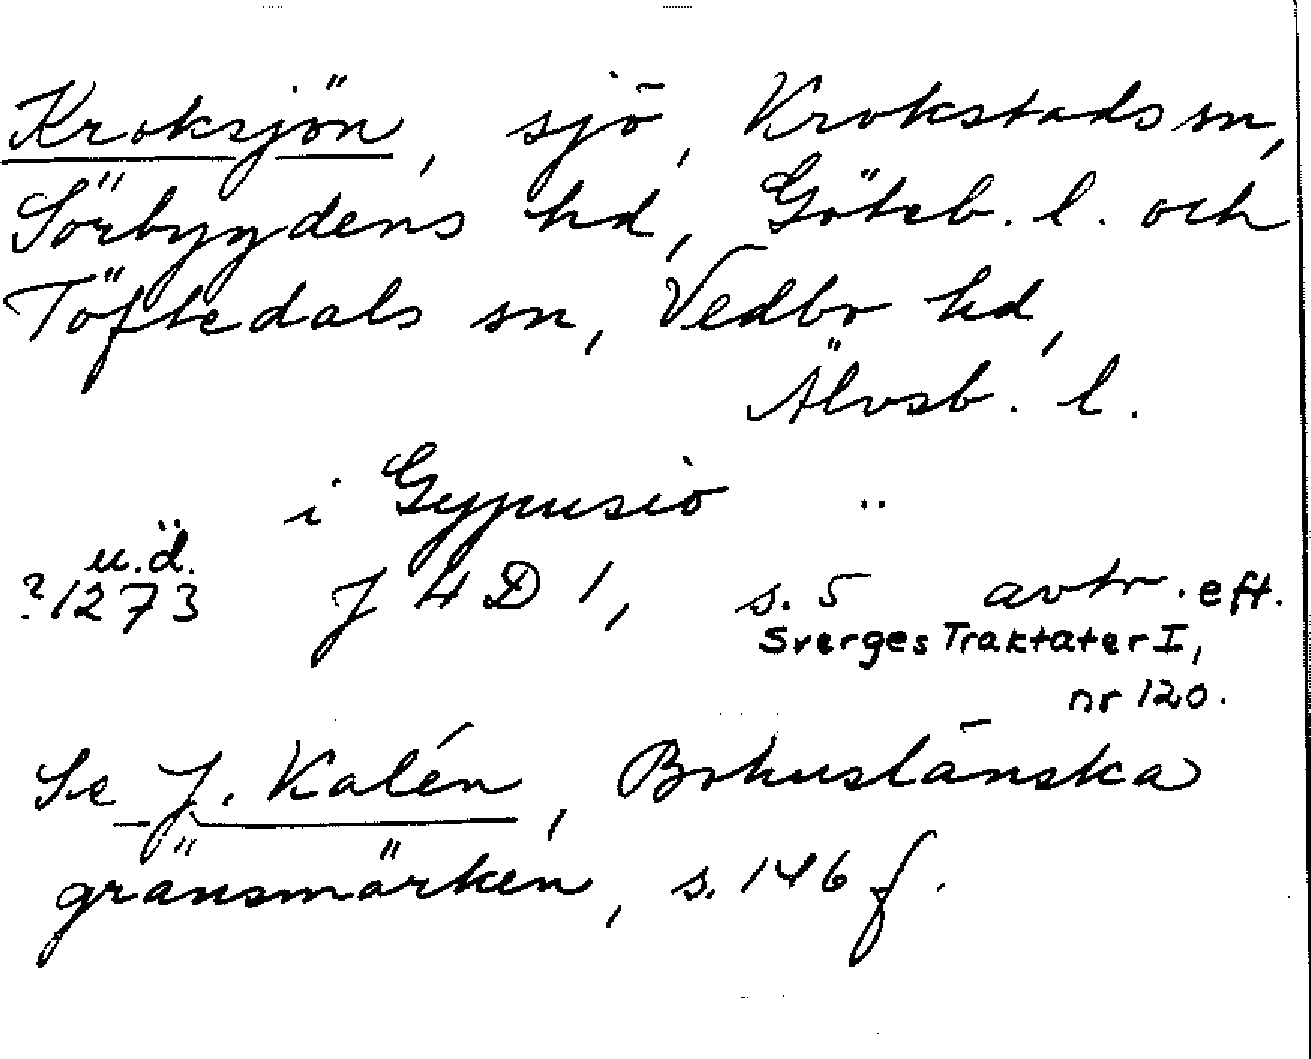 Kroksjön, sjö, Krokstads sn,
Sörbygdens hd, Göteb. l. och
Töftedals sn, Vedbo hd,
Älvsb. l.
i Gypusiö
u.d.
?1273 J 4 D 1, s. 5 avtr. eft.
Sverges Traktater I,
nr 120.
Se J. Kalén, Bohuslänska
gränsmärken, s. 146 f.